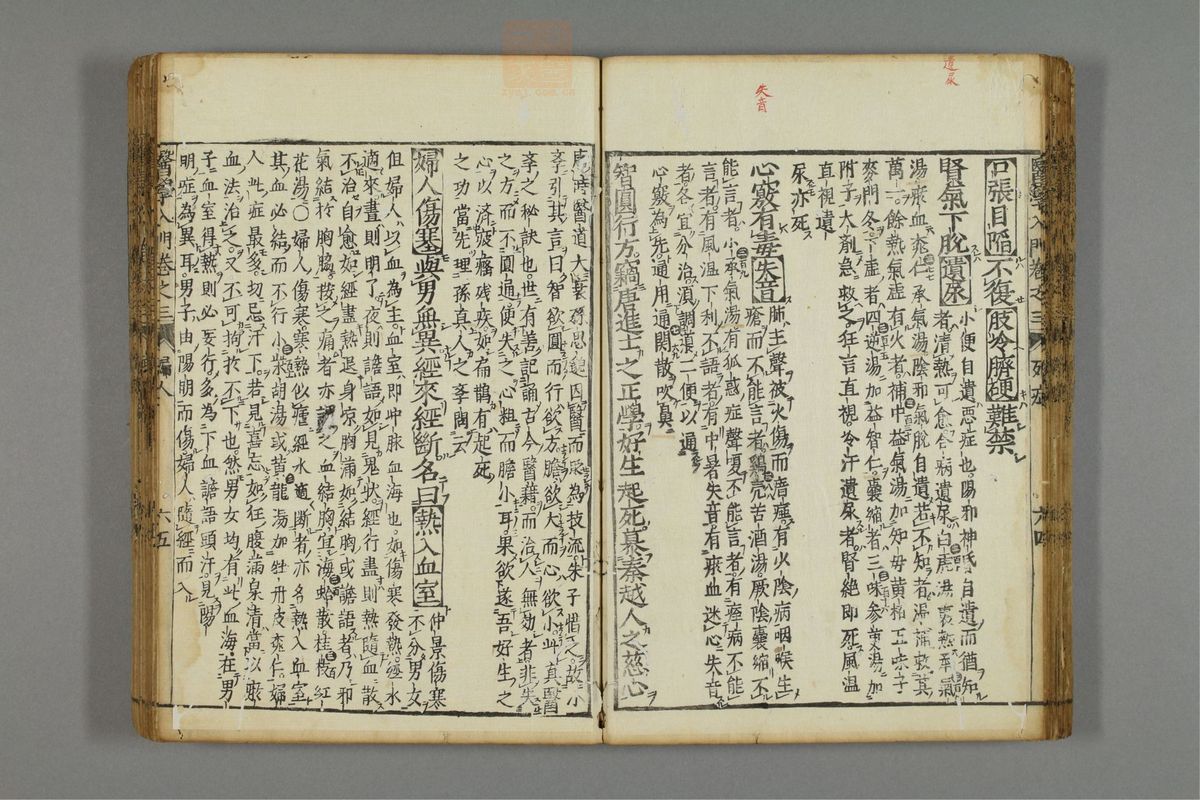 遺尿
失音
口張目陷不復肢冷臍硬難禁
腎氣下脫遺尿小便自遺惡症也陽邪神昏自遺而猶知
者清熱可愈合病遺尿白虎湯裏熱
湯瘀血桃仁承氣湯陰邪氣脫自遺若不知者溫補救其
萬一餘熱氣虛有火者補中益氣湯加知母黃栢五味子
麥門冬下虛者四逆湯加益智仁囊縮者三味參萸湯加
附子大劑急救之狂言直視冷汗遺尿者腎絕即死風溫
直視遺
尿亦死
心竅有毒失音肺主聲被火傷而瘖瘂有火陰病咽喉生
瘡而不能言者雞壳苦酒湯厥陰囊縮不
能言者小承氣湯有狐惑症聲嗄不能言者有痓病不能
言者有風溫下利不語者有中暑失音有瘀血迷心失音
者各宜分治須調渠二便以通
心竅為先通用通關散吹鼻
智圓行方竊唐進士之正學好生起死慕秦越人之慈心
唐時醫道大衰孫思邈因醫而叱為技流朱子惜之故小
孝引其言曰智欲圓而行欲方膽欲大而心欲小此真醫
孝之秘訣也世有善記誦古今醫籍而治人無効者非失
之方而不圓通便失之心粗而膽小耳果欲遂吾好生之
心以済疲癃残疾如扁鵲有起死
之功當先理孫真人之孝問云
婦人傷寒與男無異經來經斷名曰熱入血室仲景傷寒
不分男女
但婦人以血為主血室即冲脉血海也如傷寒發熱經水
適來晝則明了夜則譫語如見鬼状經行盡則熱隨血散
不治自愈如經盡熱退身凉胸滿如結胸或譫語者乃邪
氣結於胸脇按之痛者亦謂之血結胸宜海蛤散桂枝紅
花湯〇婦人傷寒寒熱似瘧經水適斷者亦名熱入血室
其血必結而不行小柴胡湯或黃龍湯加牡丹皮桃仁婦
人此症最多切忌汗下若見喜忘如狂腹滿泉清當以瘀
血法治之又不可拘於不下也然男女均有此血海在男
子血室得熱則必妄行多為下血譫語頭汗見陽
明症為異耳男子由陽明而傷婦人隨經而入
醫學入門卷之三
婦人
六五